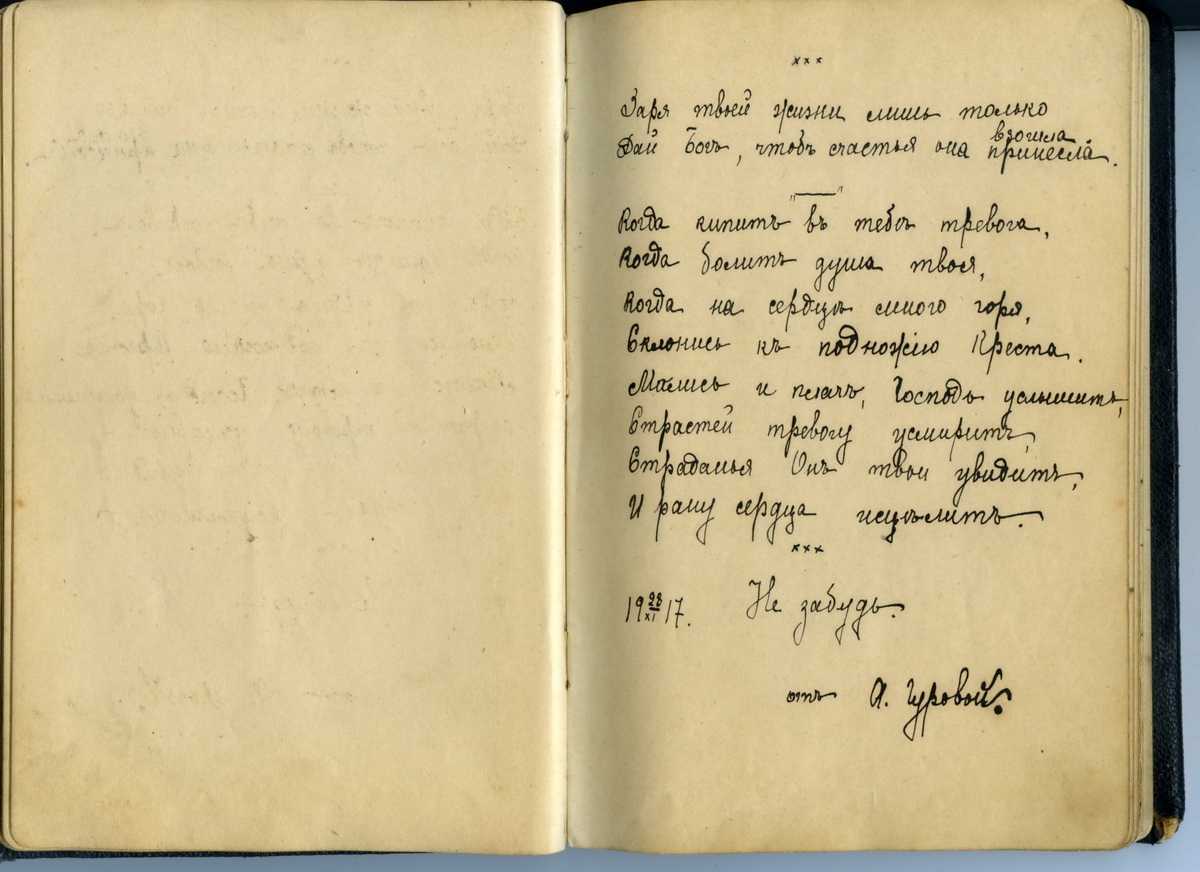 ×××
Заря твоей жизни лишь только
взошла
Дай Богъ, чтобъ счастья она принесла.
Когда кипитъ въ тебѣ тревога,
Когда болитъ душа твоя,
Когда на сердцѣ много горя,
Склонись къ подножію Креста.
Молись и плачь, Господь услышитъ,
Страстей тревогу усмиритъ,
Страданья Онъ твои увидитъ,
И рану сердца исцѣлитъ.
×××
19 28/XI 17. Не забудь.
отъ А. Гуровой.